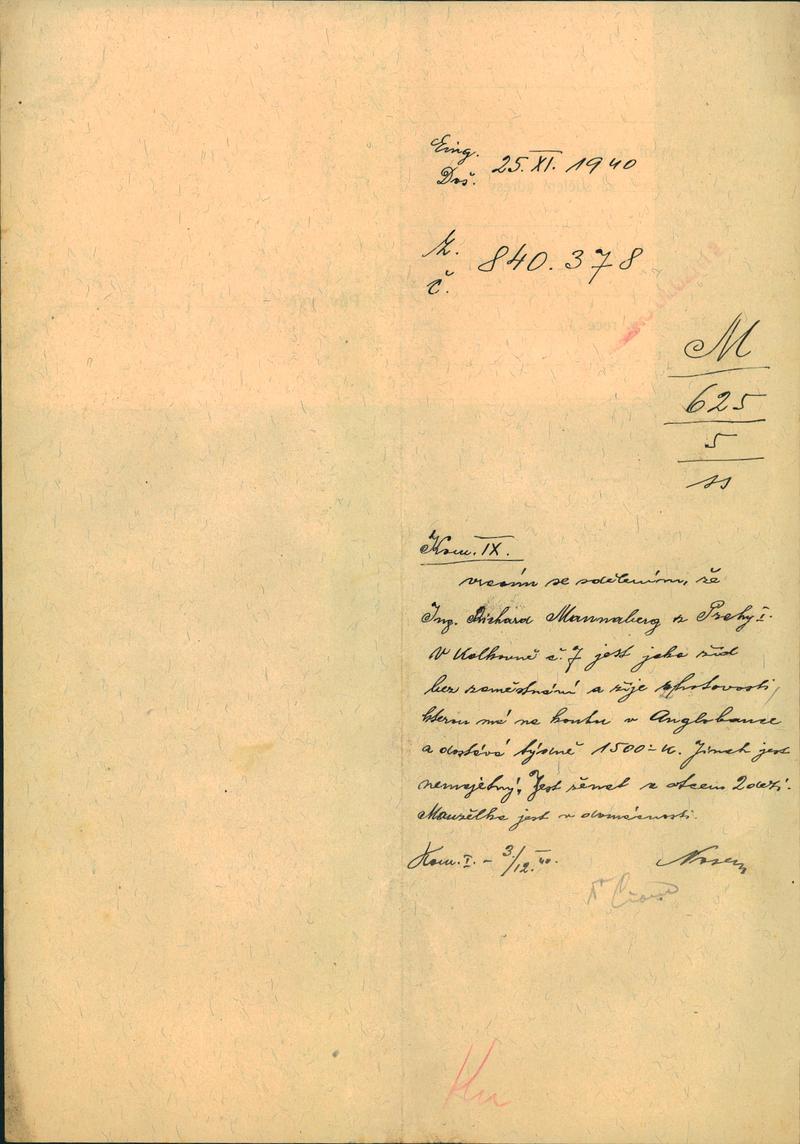 Eing.
Doš. 25. XI. 1940
Z.
č. 840.378
M
625
5
11
Kom. IX.
vracím se sdělením, že
Ing. Richard Mannaberg z Prahy I.
V Kolkovně č. 7 jest jako žid
bez zaměstnání a žije z hotovosti,
kterou má na kontu v Anglobance
a dostává týdně 1500 - K. Jinak jest
nemajetný. Jest ženat a otcem 2 dětí.
Manželka jest v domácnosti.
Kom. I. - 3./12. 40.